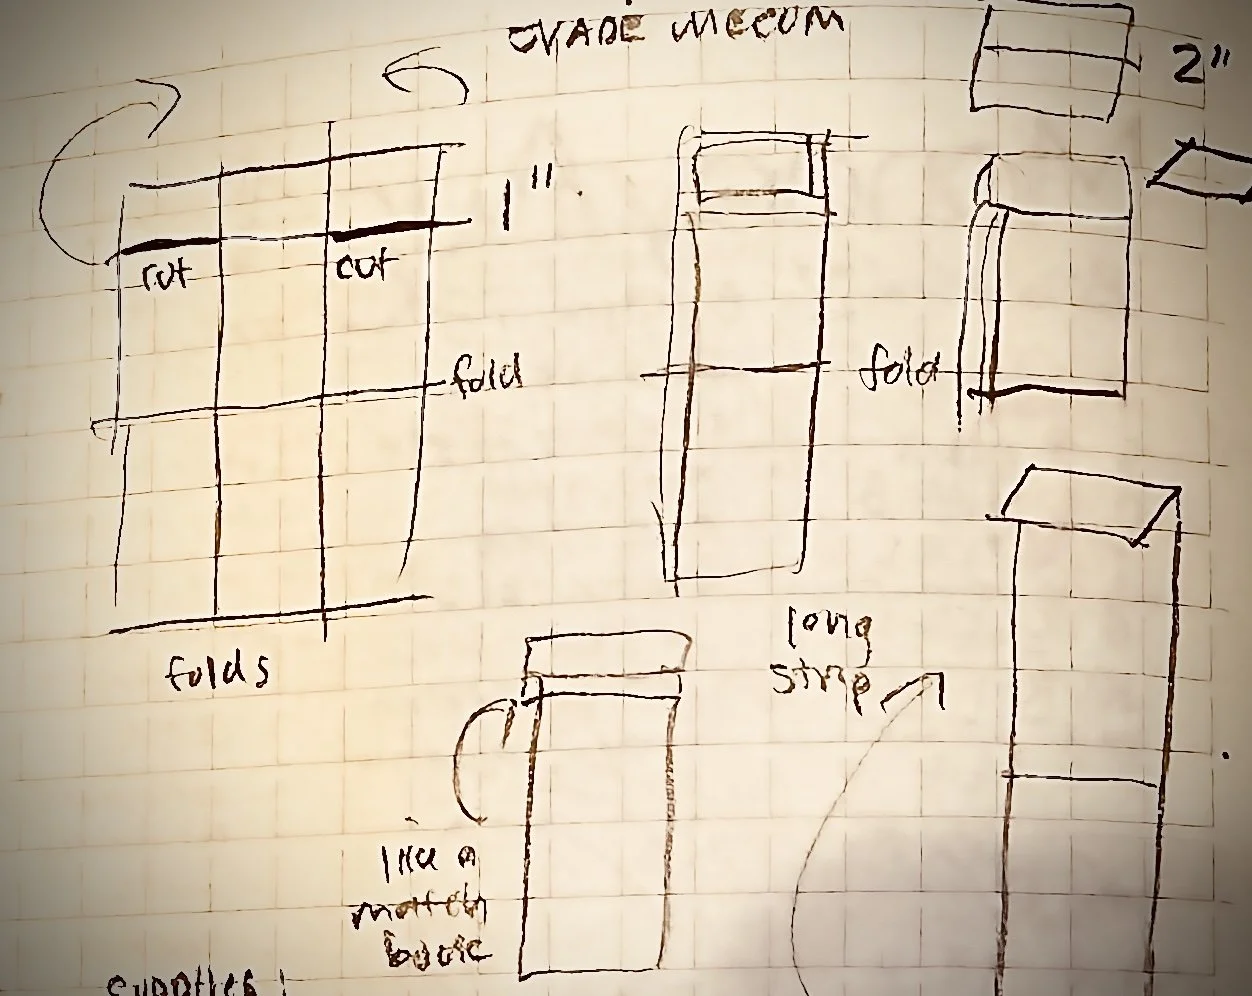 VADE MECUM
2"
1"
cut
cut
fold
fold
folds
long
strip
like a
match
book
supplies: